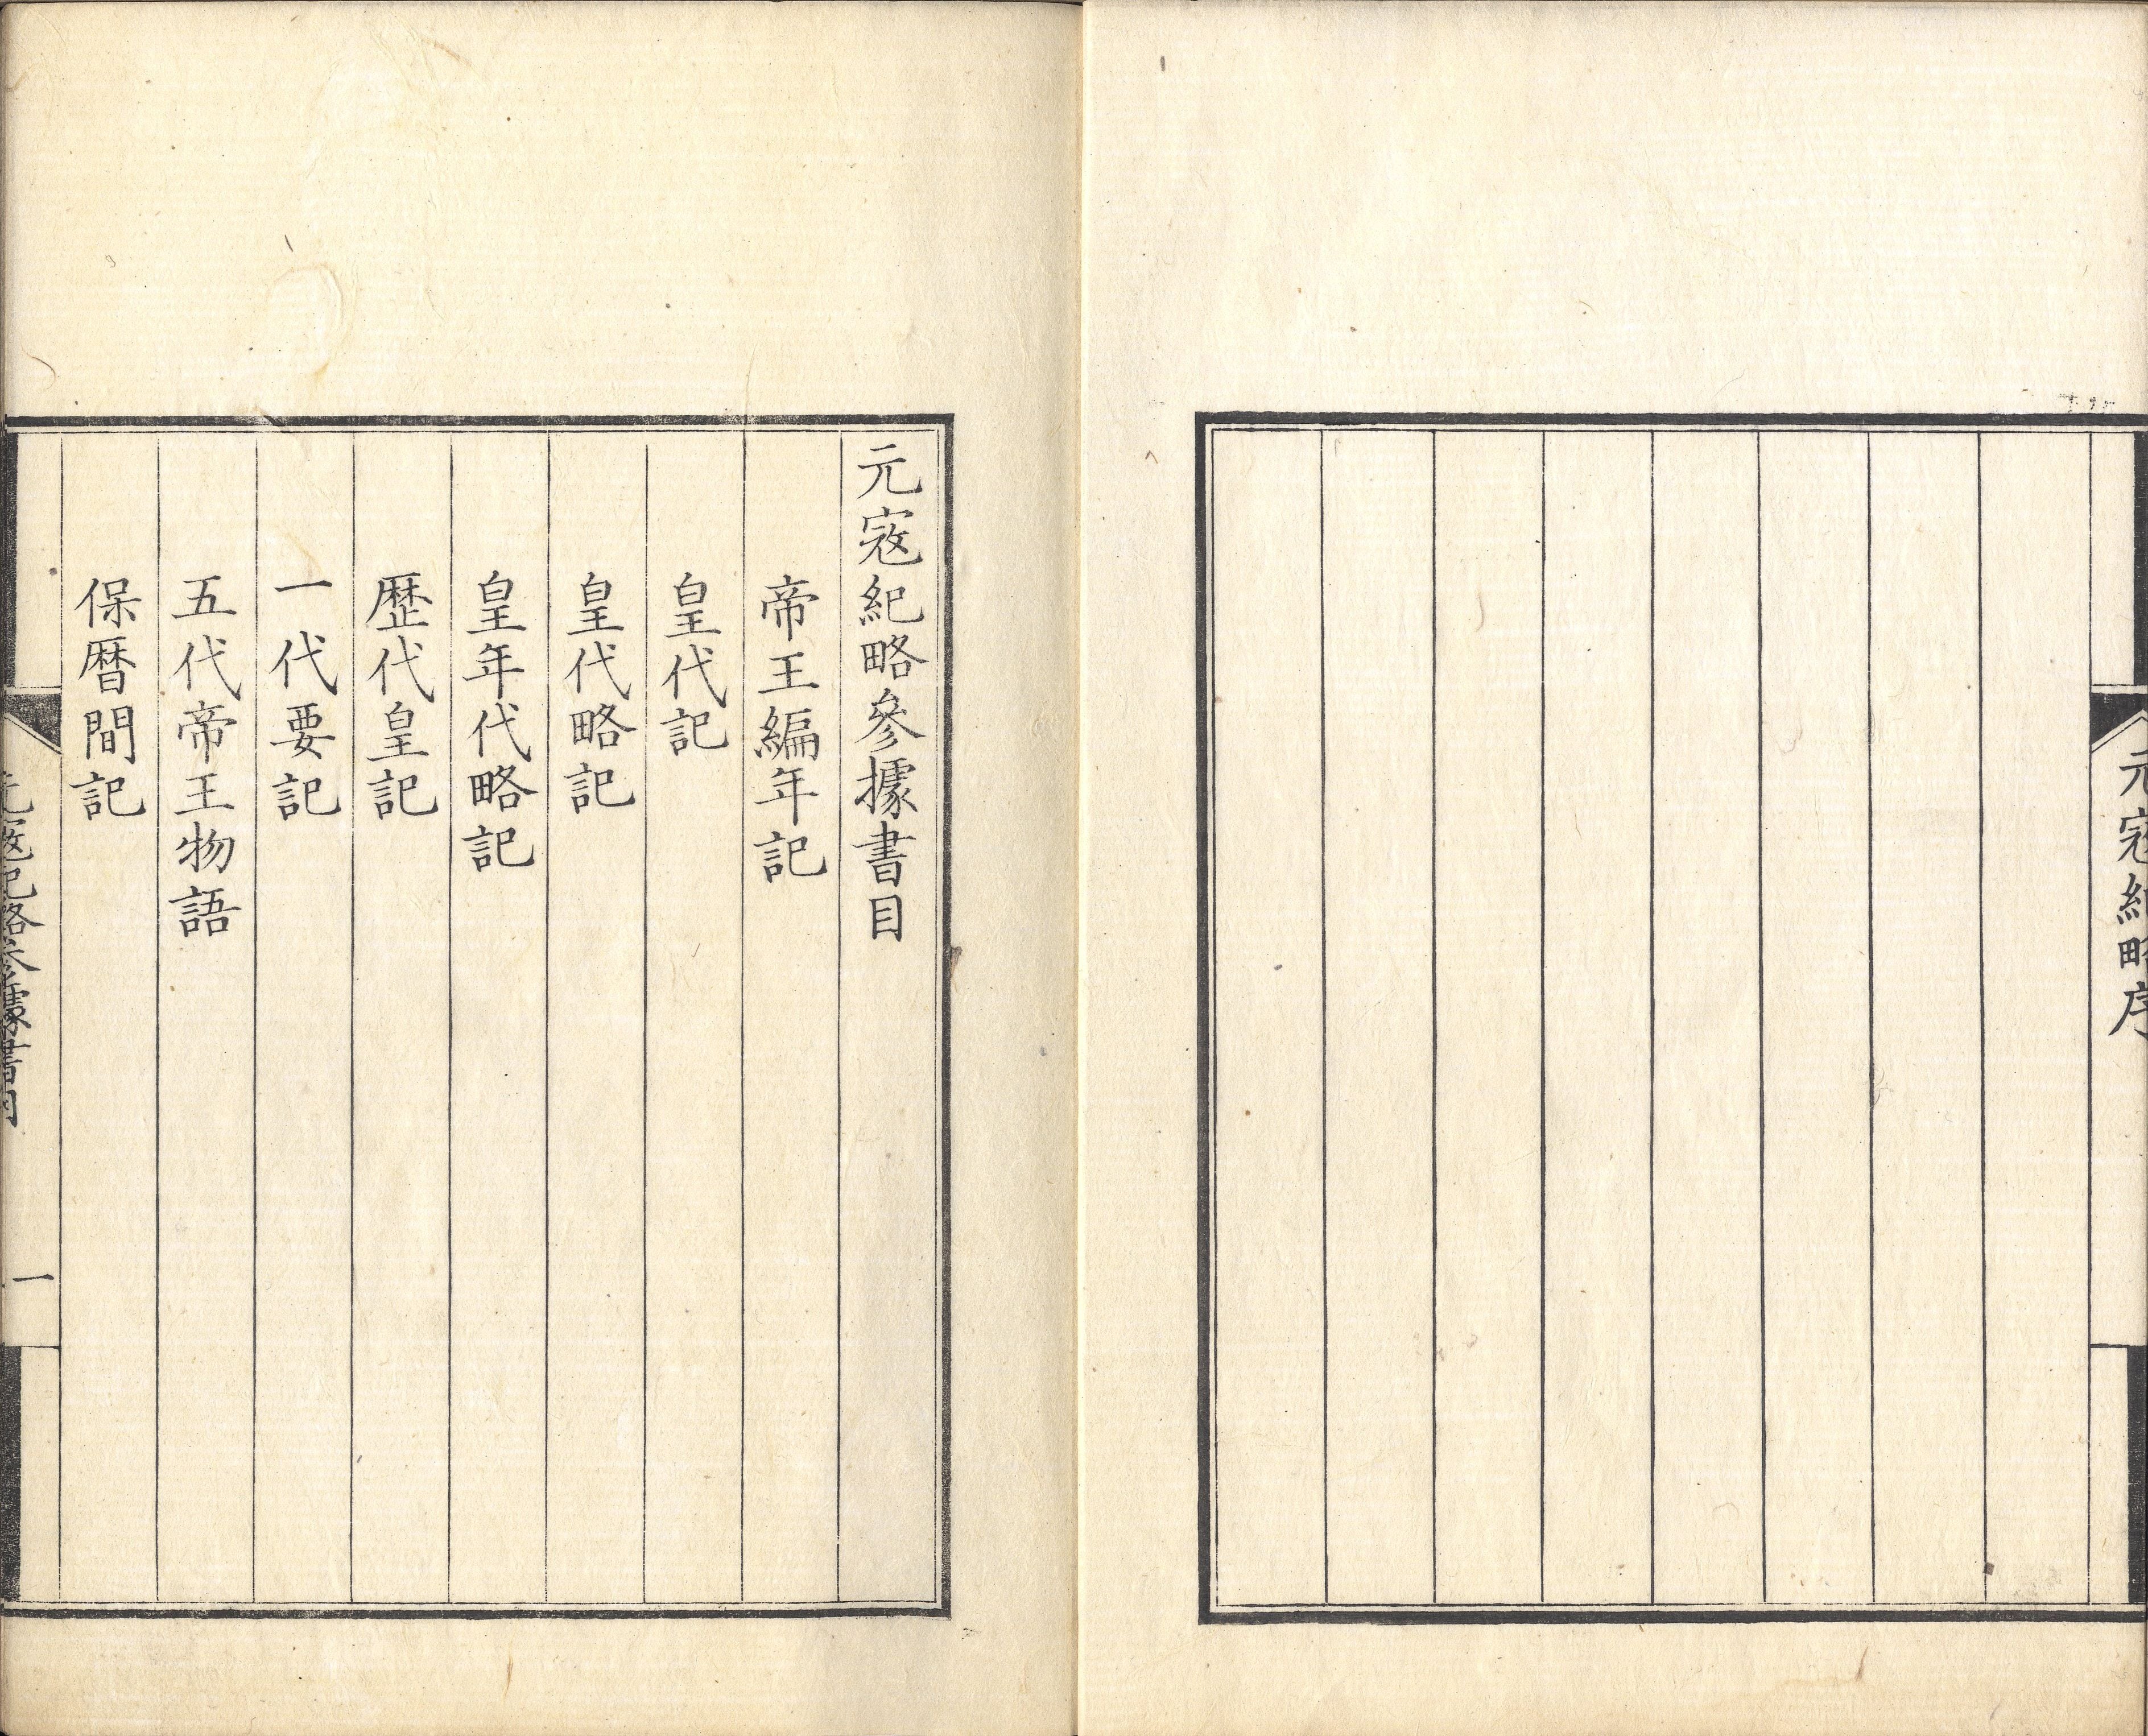 元寇紀略序
元寇紀略參據書目
帝王編年記
皇代記
皇代略記
皇年代略記
歴代皇記
一代要記
五代帝王物語
保暦間記
元寇紀略參據書目
一